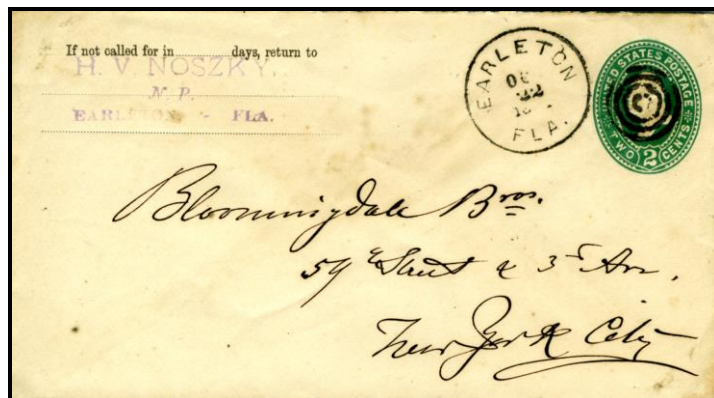 If not called for in days, return to
H. V. NOSZKY,
N. P.
EARLETON, - FLA.
EARLETON
OC
22
FLA.
UNITED STATES POSTAGE
TWO 2 CENTS
Bloomingdale Bros.
59th Street & 3rd Ave.
New York City